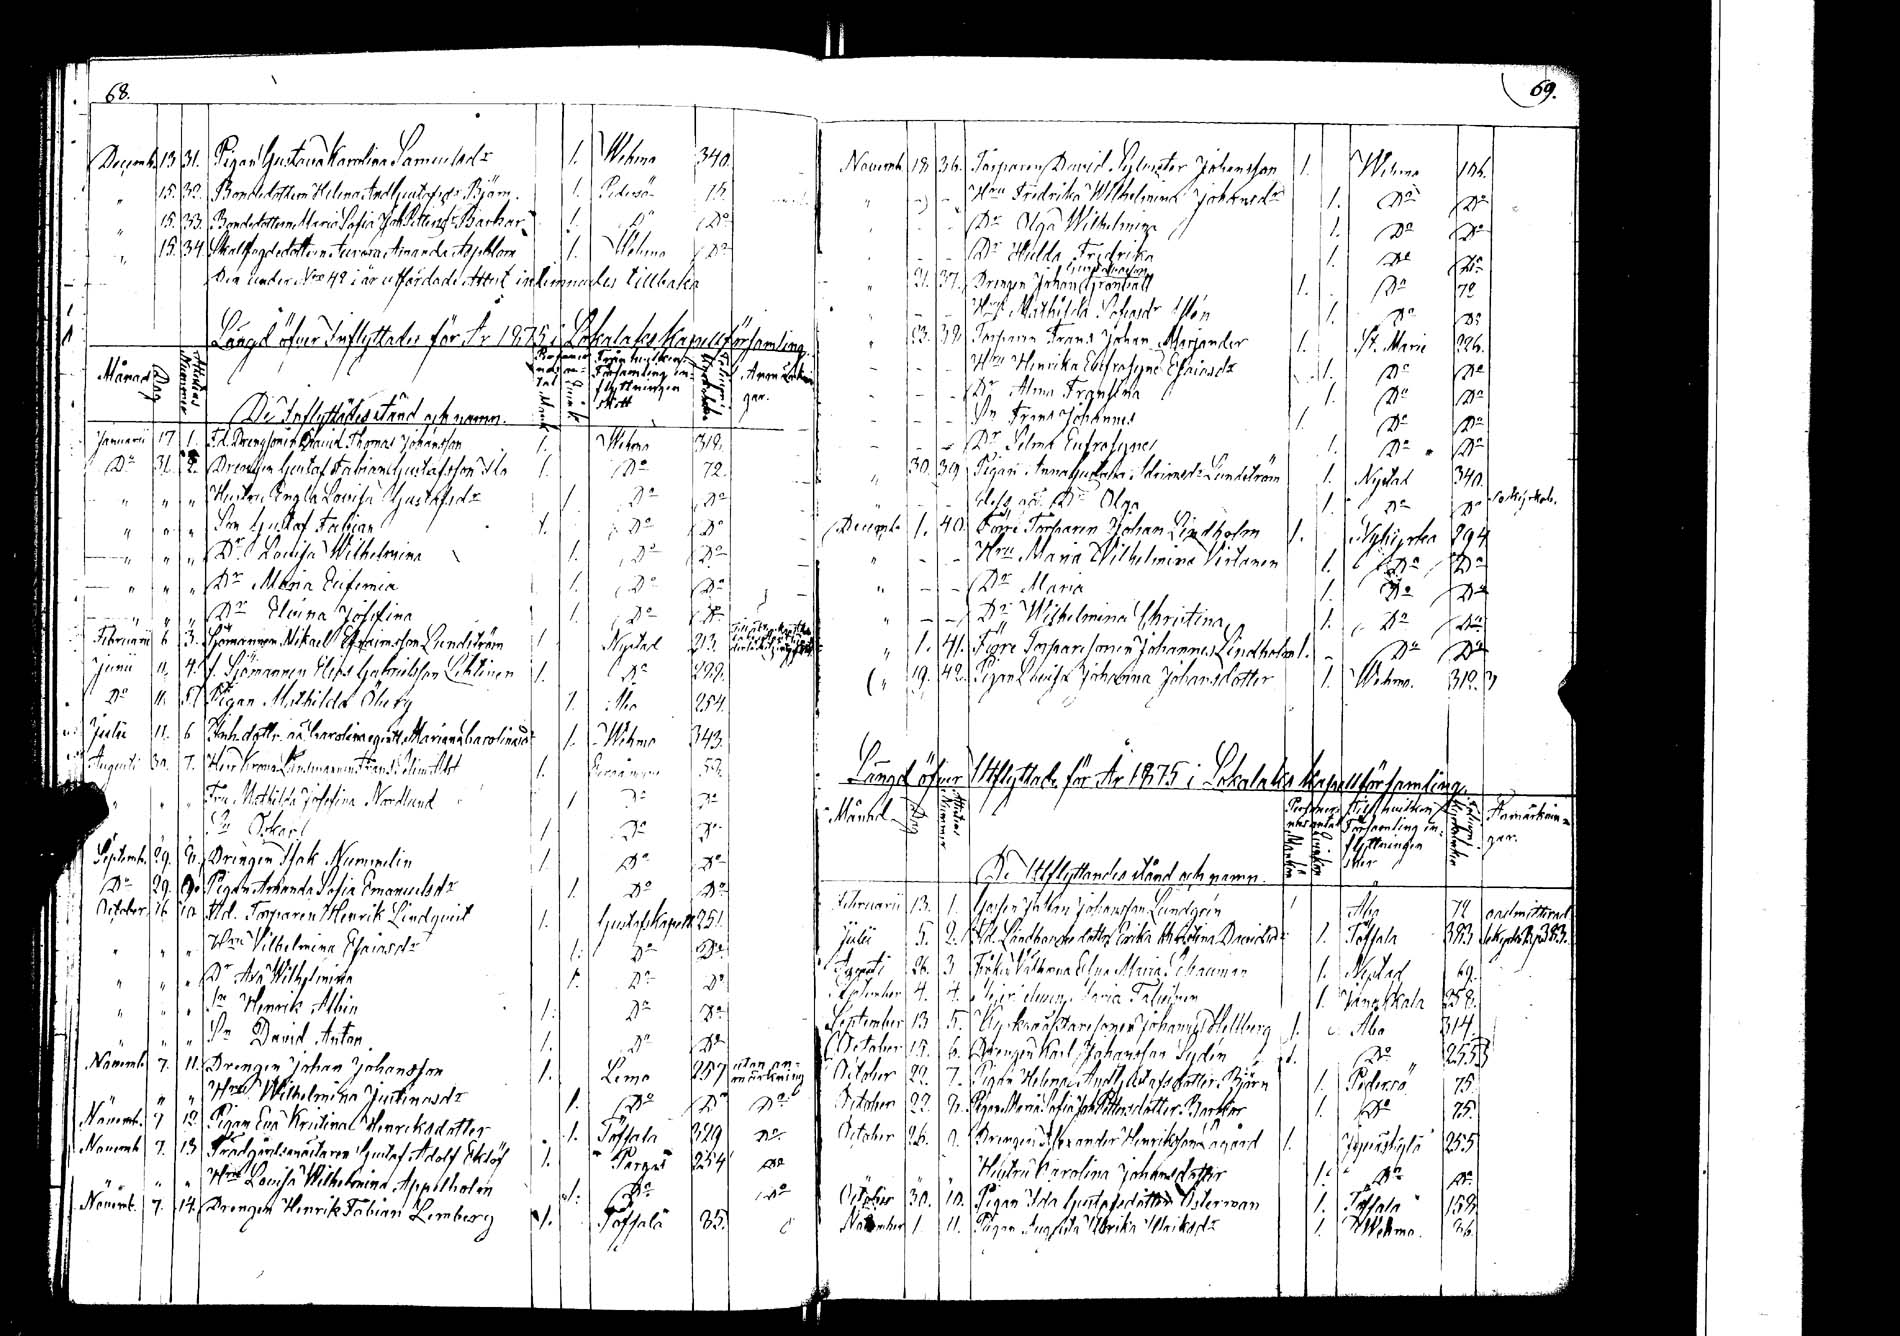 68.
Decemb. 13 31. Pigan Gustava Karolina Samuelsdr 1. Wehmo 340.
" 15. 32. Bondedottern Helena And. Gustafsdr Björn. 1. Pedersö 15.
" 15. 33. Bondedottern Maria Sofia Joh. Pettersdr Barkar 1. Do Do
" 15. 34. Skallfogdedottern Aurora Amanda 1. Wehmo Do
Den under Nro 42 i år utfärdade Attest inlemnades tillbaka
Längd öfver Inflyttade för År 1875 i Lokalaks Kapellförsamling.
Månad Dag Attestens Nummer De Inflyttades stånd och namn. Mank. Qvink. Från hvilken Församling inflyttningen skett Anmärkningar.
Januarii 17 1. Fd. Drengsonen David Thomas Johansson 1. Wehmo 318.
Do 31. 2. Drengen Gustaf Fabian Gustafsson Ilo 1. Do 72.
" " " Hustru Engla Lovisa Gustafsdr 1 Do Do
" " " Son Gustaf Fabian 1. Do Do
" " " Dr Lovisa Wilhelmina 1. Do Do
" " " Dr Maria Eufemia 1. Do Do
" " " Dr Elvina Josefina 1. Do Do
Februarii 6 3. Sjömannen Mikael Efraimsson Lundström 1 Nystad 213.
Junii 11. 4. f. Sjömannen Elias Gabrielsson Lehtinen 1. Do 299.
Do 11. 5. Pigan Mathilda Öberg 1. Åbo 254.
Julii 11. 6 1. Wehmo 343.
Augusti 30. 7. Herr Krono Länsmannen Frans Selim 1. 53.
" " " Fru Mathilda Josefina Nordlund 1 Do Do
" " " Sn Oskar 1 Do Do
Septemb. 29. 8. Drengen Isak Nummelin 1. Do Do
Do 29. 9. Pigan Amanda Sofia Emanuelsdr 1. Do Do
October 16. 10. Fd. Torparen Henrik Lindqvist 1. Gustafs Kapell 251.
" " " Hru Vilhelmina Esaiasdr 1. Do Do
" " " Dr Ava Wilhelmina 1. Do Do
" " " Sn Henrik Albin 1. Do Do
" " " Sn David Anton 1. Do Do
Novemb. 7. 11. Drengen Johan Johansson 1. Lemo 257 utan anmärkning
" " Hru Wilhelmina Justinasdr 1. Do Do Do
Novemb. 7 12. Pigan Eva Kristina Henriksdotter 1. Töfsala 329 Do
Novemb. 7. 13 Trädgårdsmästaren Gustaf Adolf Eklöf 1. Pargas 254 Do
" " Hru Lovisa Wilhelmina Appelholm 1. Do Do
Novemb. 7. 14. Drengen Henrik Fabian Lemberg 1. Töfsala 35.
69.
Novemb. 18. 36. Torparen David Sylvester Johansson 1. Wehmo 106.
" - - Hru Fredrika Wilhelmina Johansdr 1. Do Do
- - Dr Olga Wilhelmina 1. Do Do
- - Dr Hulda Fredrika 1. Do Do
" 21. 37. Drengen Johan Gustafsson Grönvall 1. Do 72
" - - Hru Mathilda 1. Do Do
" 23. 38. Torparen Frans Johan Marjander 1. St. Marie 226.
- - - Hru Henrika Eufrosyne Esaiasdr 1. Do Do
- - - Dr Alma Fransina 1. Do Do
- - - Sn Frans Johannes 1. Do Do
- - - Dr Selma Eufrosyne 1. Do Do
" 30. 39. Pigan Anna Gustava Adriansdr Lundström 1. Nystad 340.
- - Dr Olga 1. Do Do
Decemb. 1. 40. Förre Torparen Johan Lindholm 1. Nykyrka 294
" - - Hru Maria Wilhelmina Virtanen 1. Do Do
" - - Dr Maria 1. Do Do
- - Dr Wilhelmina Christina 1. Do Do
" 1. 41. Förre Torparesonen Johannes Lindholm 1. - Do Do
" 19. 42. Pigan Lovisa Johanna Johansdotter 1. Wehmo. 318.
Längd öfver Utflyttade för År 1875 i Lokalaks Kapellförsamling.
Månad Dag Attestens Nummer De Utflyttandes stånd och namn. Mankön Qvinkön Till hvilken Församling inflyttningen sker Anmärkningar.
Februarii 13. 1. Johan Johansson Lundgrén 1 Åbo 72 oadmitterad
Julii 5. 2. Erika Christina Davidsdr 1. Töfsala 383
Augusti 26. 3 Fröken Vilhelmina Elna Maria Schauman 1. Nystad 69.
September 4. 4. Maria 1. 258.
September 13 5. Kyrkovaktaresonen Johannes Hellberg 1. Åbo 314.
October 15. 6. Drengen Karl Johansson Sydén 1. Do 255
October 22. 7. Pigan Helena And. Gustafsdotter Björn 1. Pedersö 75.
October 22. 8. Pigan Maria Sofia Joh. Pettersdotter Barkar 1. Do 75.
October 26. 9. Drengen Alexander Henriksson 1. Jyväskylä 255
" " Hustru Karolina Johansdotter 1. Do Do
October 30. 10. Pigan Ida Gustafsdotter Österman 1. Töfsala 158.
November 1 11. Pigan Augusta Ulrika Ulriksdr 1. Wehmo. 36.